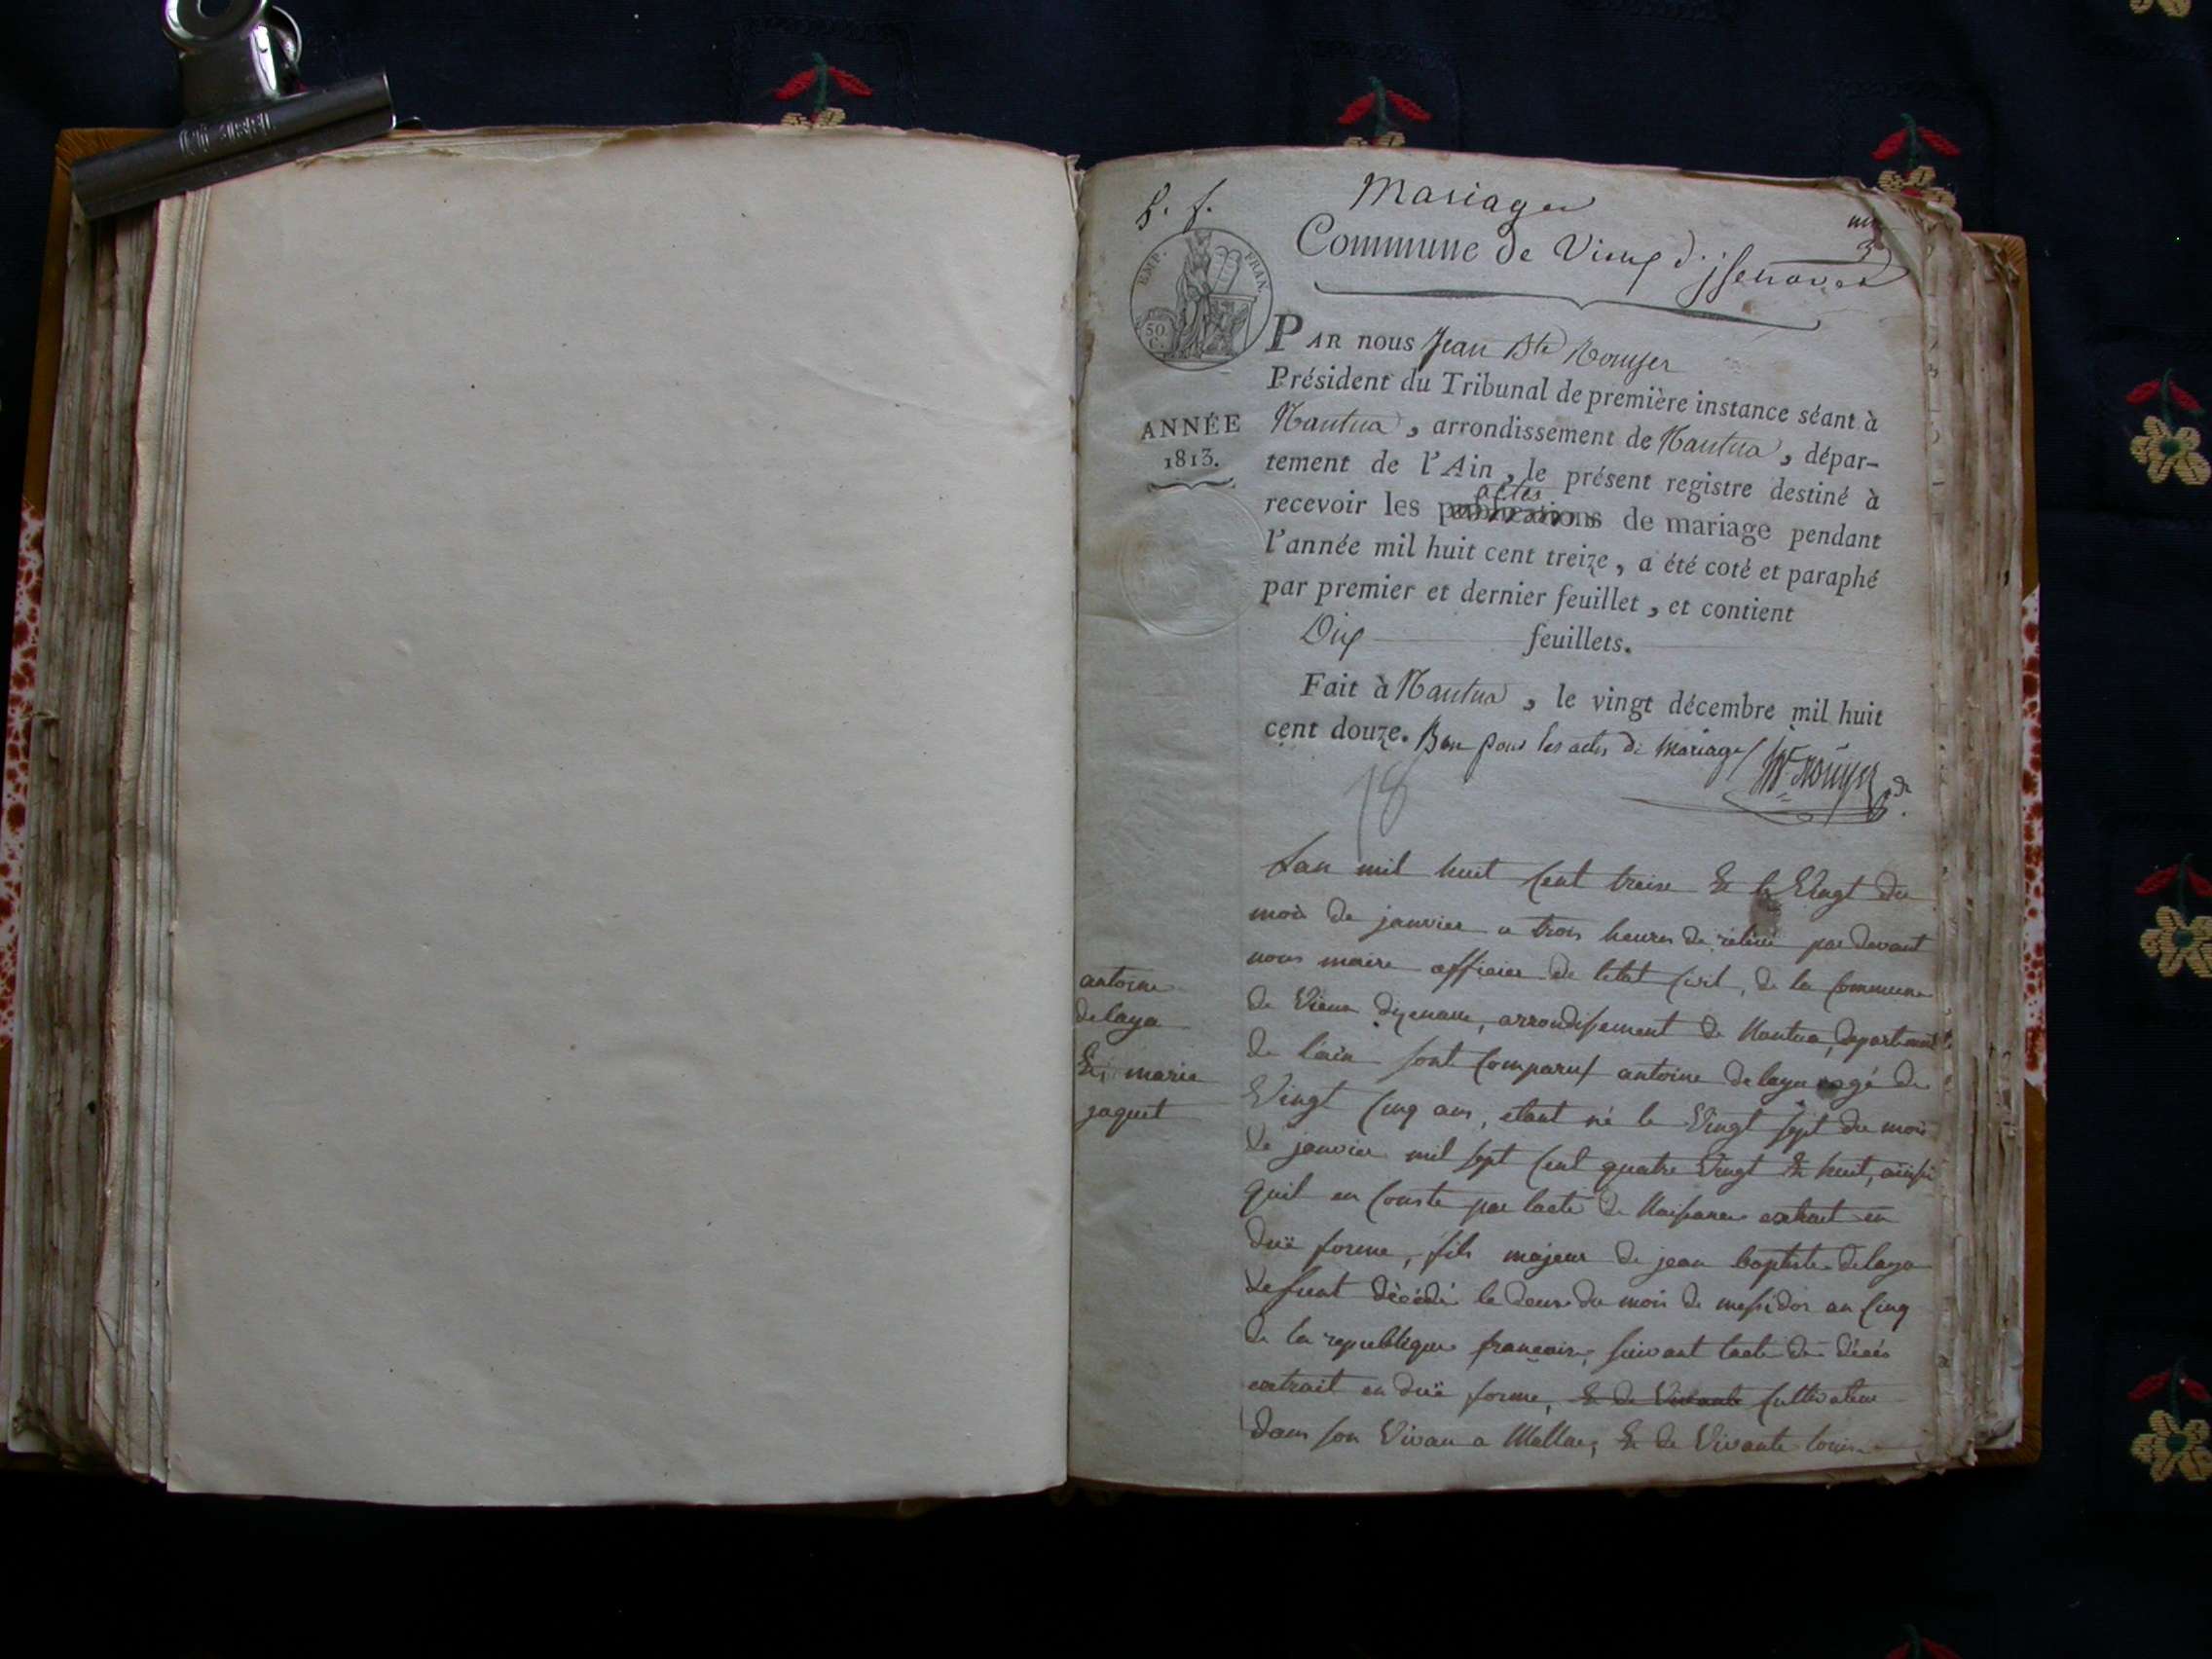 Mariages
Commune de Vieux d'jsenaves
EMP. FRAN.
50
C.
PAR nous Jean Bte Rouyer
Président du Tribunal de première instance séant à
Nantua, arrondissement de Nantua, dépar-
tement de l'Ain, le présent registre destiné à
actes
recevoir les publications de mariage pendant
l'année mil huit cent treize, a été coté et paraphé
par premier et dernier feuillet, et contient
Dix feuillets.
ANNÉE
1813.
Fait à Nantua, le vingt décembre mil huit
cent douze. Bon pour les actes de Mariage
18
Lan mil huit Cent treize & le Vingt du
mois de janvier a trois heures de relevé par devant
nous maire officier de letat Civil, de la Commune
de Vieux dizenave, arrondissement de Nantua, departement
de lain sont Comparus antoine delaya agé de
Vingt Cinq ans, etant né le Vingt sept du mois
de janvier mil sept Cent quatre Vingt & huit, ainsi
quil en Conste par lacte de Naissance extrait en
duë forme, fils majeur de jean baptiste delaya
defunt décédé le douze du mois de messidor an Cinq
de la republique francaise, suivant lacte de décés
extrait en duë forme, & de Vivante Cultivateur
dans son Vivan a , & de Vivante louise
antoine
delaya
& marie
jaquet